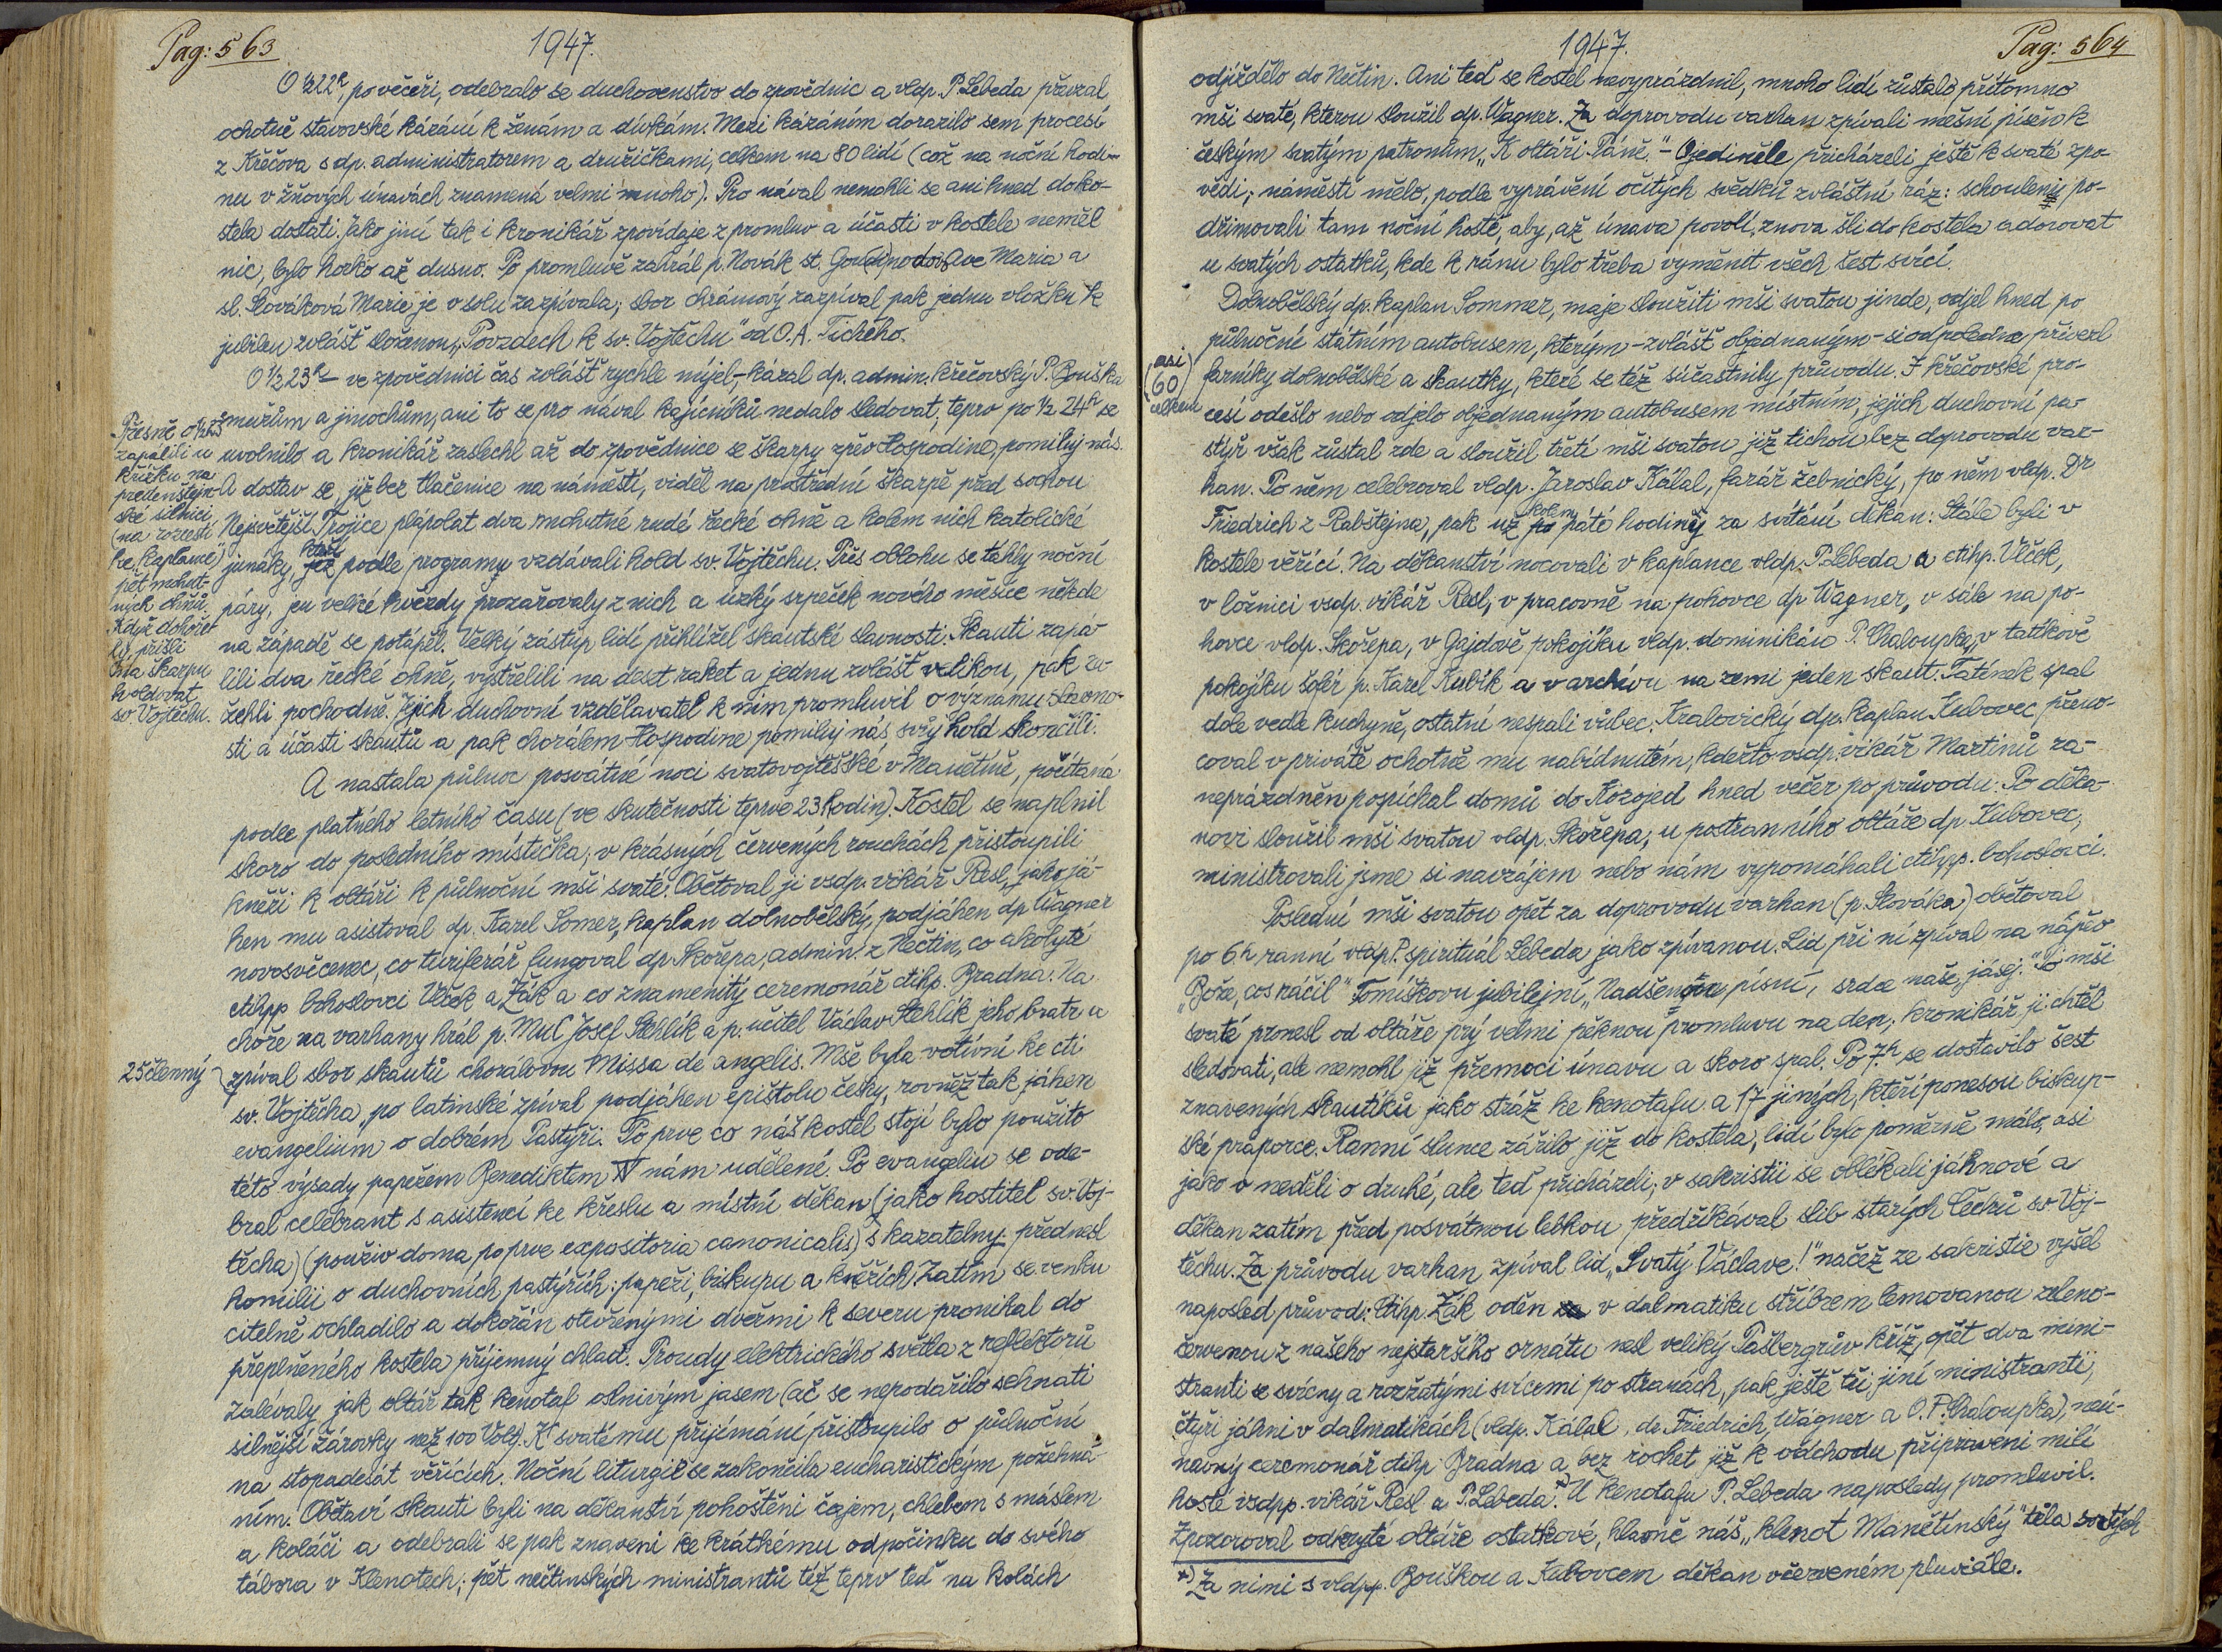 Pag: 563
1947.
O ½22h, po večeři, odebralo se duchovenstvo do zpovědnic a vldp. P. Lebeda převzal
ochotně stavovské kázání k ženám a dívkám. Mezi kázáním dorazilo sem procesí
z Křečova s dp. administratorem a družičkami, celkem na 80 lidí (což na noční hodi-
nu v žňových únavách znamená velmi mnoho). Pro nával nemohli se ani hned do ko-
stela dostati. Jako jiní tak i kronikář zpovídaje z promluv a účasti v kostele neměl
nic, bylo horko až dusno. Po promluvě zahrál p. Novák st. Gounodovo Ave Maria a
sl. Slováková Marie je v solu zazpívala; sbor chrámový zazpíval pak jednu vložku k
jubileu zvlášť složenou „Povzdech k sv. Vojtěchu" od O. A. Tichého.
O ½23h – ve zpovědnici čas zvlášť rychle míjel – kázal dp. admin. křečovský P. Bouška
mužům a jinochům, ani to se pro nával kajícníků nedalo sledovat, teprv po ½ 24h se
uvolnilo a kronikář zaslechl až do zpovědnice se škarpy zpěv Hospodine, pomiluj nás.
A dostav se, již bez tlačenice na náměstí, viděl na prostřední škarpě před sochou
Nejsvětější Trojice plápolat dva mohutné rudé řecké ohně a kolem nich katolické
junáky, kteří podle programu vzdávali hold sv. Vojtěchu. Přes oblohu se táhly noční
páry, jen velké hvězdy prozařovaly z nich a úzký srpeček nového měsíce někde
na západě se potápěl. Velký zástup lidí přihlížel skautské slavnosti. Skauti zapá-
lili dva řecké ohně, vystřelili na deset raket a jednu zvlášť velikou, pak za-
žehli pochodně. Jejich duchovní vzdělavatel k nim promluvil o významu slavno-
sti a účasti skautů a pak chorálem Hospodine pomiluj nás, svůj hold skončili.
Přesně o ½23
zapálili u
křížku na
predenštejn-
ské silnici
(na rozcestí
ke kaplance)
pět mohut-
ných ohňů.
Když dohoře-
ly, přišli
na škarpu
holdovat
sv. Vojtěchu.
A nastala půlnoc posvátné noci svatovojtěšské v Manětíně, počítaná
podle platného letního času (ve skutečnosti teprve 23 hodin). Kostel se naplnil
skoro do posledního místečka; v krásných červených rouchách přistoupili
kněží k oltáři k půlnoční mši svaté. Obětoval ji vsdp. vikář Resl, jako já-
hen mu asistoval dp. Karel Somer, kaplan dolnobělský, podjáhen dp Wagner
novosvěcenec, co turiferář fungoval dp. Skořepa, admin. z Nečtin, co akolyté
ctihpp bohoslovci Vlček a Žák a co znamenitý ceremonář ctihp. Bradna. Na
chóře na varhany hrál p. MuC Josef Stehlík a p. učitel Václav Stehlík jeho bratr a
25členný
zpíval sbor skautů chorálovou Missa de angelis. Mše byla votivní ke cti
sv. Vojtěcha, po latinské zpíval podjáhen epištolu česky, rovněž tak jáhen
evangelium o dobrém Pastýři. Po prve co náš kostel stojí bylo použito
této výsady papežem Benediktem XV nám udělené. Po evangeliu se ode-
bral celebrant s asistencí ke křeslu a místní děkan (jako hostitel sv. Voj-
těcha) (použiv doma poprve expositoria canonicalis) s kazatelny přednesl
homilii o duchovních pastýřích; papeži, biskupu a kněžích. Zatím se venku
citelně ochladilo a dokořán otevřenými dveřmi k severu pronikal do
přeplněného kostela příjemný chlad. Proudy elektrického světla z reflektorů
zalévaly jak oltář tak kenotaf oslnivým jasem (ač se nepodařilo sehnati
silnější žárovky než 100 Volt). K svatému přijímání přistoupilo o půlnoční
na stopadesát věřících. Noční liturgie se zakončila eucharistickým požehná-
ním. Obětaví skauti byli na děkanství pohoštěni čajem, chlebem s máslem
a koláči a odebrali se pak znaveni ke krátkému odpočinku do svého
tábora v Klenotech; pět nečtinských ministrantů též teprv teď na kolách
1947.
Pag: 564
odjíždělo do Nečtin. Ani teď se kostel nevyprázdnil, mnoho lidí zůstalo přítomno
mši svaté, kterou sloužil dp. Wagner. Za doprovodu varhan zpívali mešní píseň k
českým svatým patronům „K oltáři Páně." – Ojediněle přicházeli ještě k svaté zpo-
vědi; náměstí mělo, podle vyprávění očitých svědků zvláštní ráz: schoulený po-
dřimovali tam noční hosté, aby, až únava povolí, znova šli do kostela adorovat
u svatých ostatků, kde k ránu bylo třeba vyměnit všech šest svící.
Dolnobělský dp. kaplan Sommer, maje sloužiti mši svatou jinde, odjel hned po
půlnoční státním autobusem, kterým – zvlášť objednaným – si odpoledne přivezl
asi
(60)
celkem
farníky dolnobělské a skautky, které se též súčastnily průvodu. I křečovské pro-
cesí odešlo nebo odjelo objednaným autobusem místním, jejich duchovní pa-
stýř však zůstal zde a sloužil třetí mši svatou již tichou bez doprovodu var-
han. Po něm celebroval vldp. Jaroslav Kálal, farář žebnický, po něm vldp. Dr
Friedrich z Rabštejna, pak už kolem páté hodiny za svítání děkan. Stále byli v
kostele věřící. Na děkanství nocovali v kaplance vldp. P. Lebeda a ctihp. Vlček,
v ložnici vsdp. vikář Resl, v pracovně na pohovce dp Wagner, v sále na po-
hovce vldp. Skořepa, v Gajdově pokojíku vldp. dominikán P. Chaloupka, v tatíkově
pokojíku šofér p. Karel Kubík a v archivu na zemi jeden skaut. Tatínek spal
dole vedle kuchyně, ostatní nespali vůbec. Kralovický dp. kaplan Kubovec přeno-
coval v privátě ochotně mu nabídnutém, kdežto vsdp. vikář Martinů za-
neprázdněn pospíchal domů do Kozojed hned večer po průvodu. Po děka-
novi sloužil mši svatou vldp. Skořepa, u postranního oltáře dp Kubovec,
ministrovali jsme si navzájem nebo nám vypomáhali ctihpp. bohoslovci.
Poslední mši svatou opět za doprovodu varhan (p. Slováka) obětoval
po 6h ranní vldp P. spirituál Lebeda jako zpívanou. Lid při ní zpíval na nápěv
„Bože, cos ráčil" Tomíškovu jubilejní „Nadšenou písní, srdce naše, jásej." Po mši
svaté pronesl od oltáře prý velmi pěknou promluvu na den, kronikář ji chtěl
sledovati, ale nemohl již přemoci únavu a skoro spal. Po 7h se dostavilo šest
znavených skautíků jako stráž ke kenotafu a 17 jiných, kteří ponesou biskup-
ské praporce. Ranní slunce zářilo již do kostela, lidí bylo poměrně málo, asi
jako v neděli o druhé, ale teď přicházeli; v sakristii se oblékali jáhnové a
děkan zatím před posvátnou lebkou předříkával slib starých Čechů sv Voj-
těchu. Za průvodu varhan zpíval lid „Svatý Václave!" načež ze sakristie vyšel
naposled průvod: Ctihp. Žák oděn v dalmatiku stříbrem lemovanou zeleno-
červenou z našeho nejstaršího ornátu nesl veliký Pašbergrův kříž, opět dva mini-
stranti se svícny a rozžatými svícemi po stranách, pak ještě tři, jiní ministranti,
čtyři jáhni v dalmatikách (vldp. Kálal, dr. Friedrich, Wágner a O. P. Chaloupka), neú-
navný ceremonář ctihp. Bradna a bez rochet již k odchodu připraveni milí
hosté vsdpp. vikář Resl a P. Lebeda.+) U kenotafu P. Lebeda naposledy promluvil.
Zpozoroval odkryté oltáře ostatkové, hlavně náš „klenot Manětínský" těla svatých
+) Za nimi s vldpp. Bouškou a Kubovcem děkan v červeném pluviále.